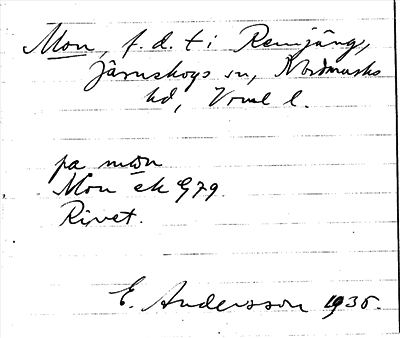 Mon, f.d. t i Remjäng,
Järnskogs sn, Nordmarks
hd, Vrml l.
pa mon
Mon ek G79.
Rivet.
E. Andersson 1935.